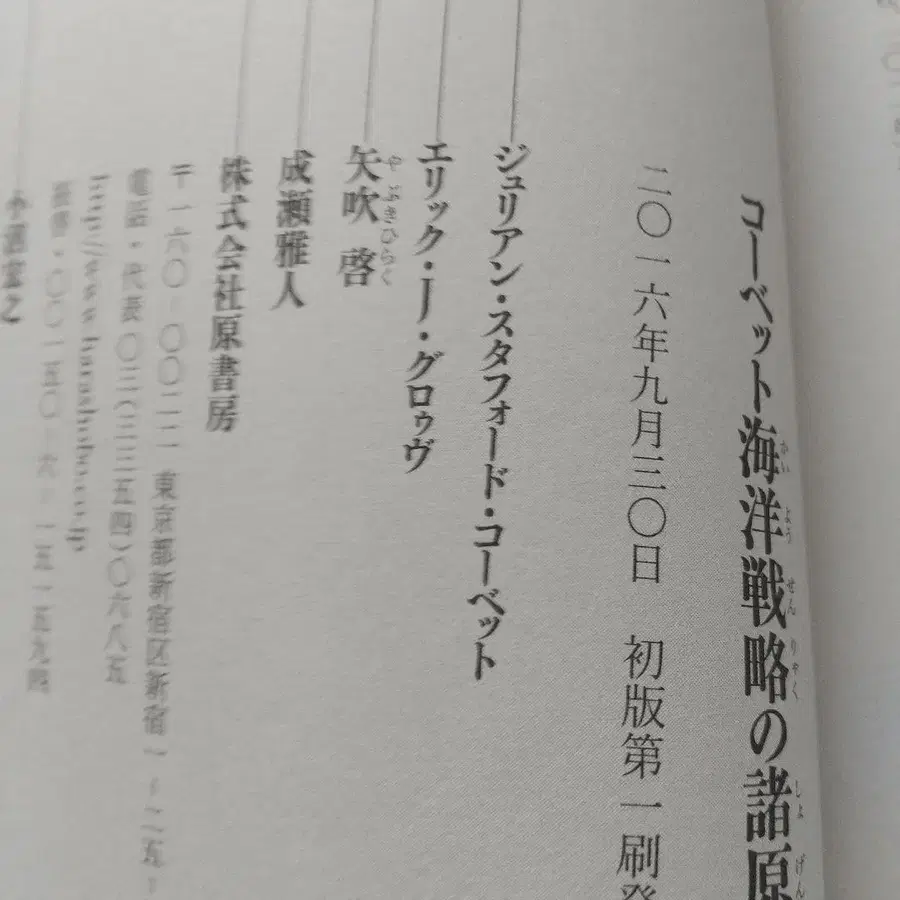 コーベット海洋戦略の諸原
かいようせんりゃくしょげん
二〇一六年九月三〇日 初版第一刷発
ジュリアン・スタフォード・コーベット
エリック・J・グロゥヴ
矢吹 啓
やぶきひらく
成瀬雅人
株式会社原書房
〒一六〇-〇〇二二 東京都新宿区新宿一-二五-
電話・代表〇三(三三五四)〇六八五
http://www.harashobo.co.jp
振替・〇〇一五〇-六-一五一五九四